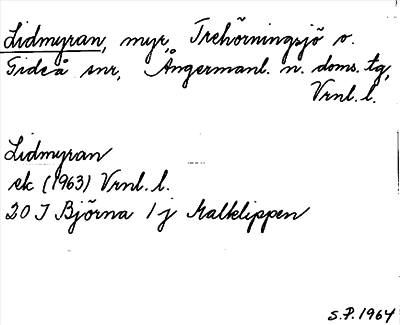 Lidmyran, myr, Trehörningsjö o.
Gideå snr, Ångermanl. n. doms. tg,
Vrnl. l.
Lidmyran
ek (1963) Vrnl. l.
20 I Björna 1 j Kalklippen
S.P. 1964